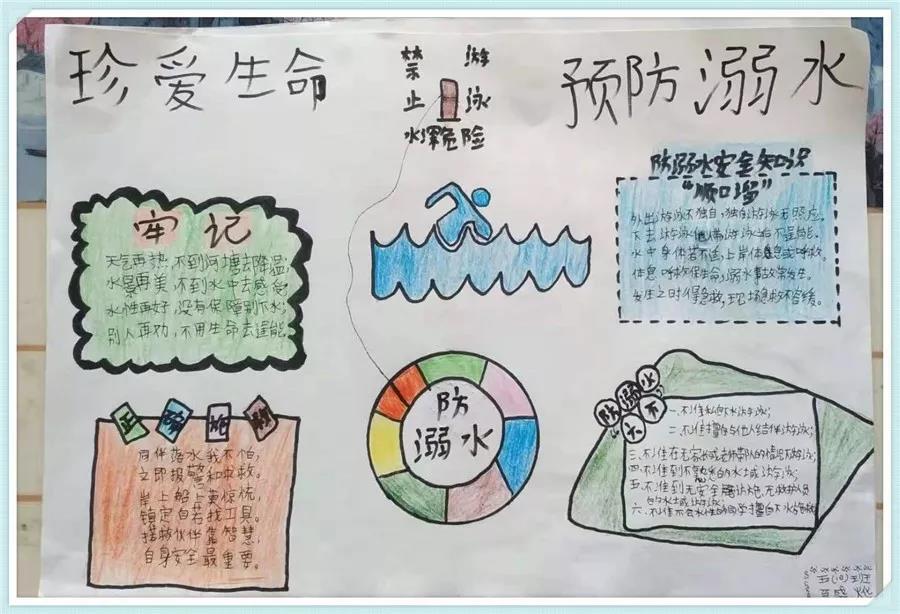 珍爱生命
禁 游
止 泳
水深危险
预防溺水
牢记
天气再热,不到河塘去降温;
水景再美,不到水中去感受
水性再好,没有保障别下水;
别人再劝,不用生命去逞能
防溺水安全知识
“顺口溜”
外出游泳不独自,独自游泳无照应。
水中身体若不适,上岸休息或呼救
休息呼救保生命,溺水事故常发生。
发生之时保急救,现场急救不容缓。
正确施救
同伴落水我不怕
立即报警和呼救。
岸上船上莫惊慌
镇定自若找工具。
拯救伙伴靠智慧,
自身安全最重要。
防
溺水
防溺水
六不
一、不准私自下水游泳;
二、不准擅自与他人结伴游泳;
三、不准在无家长或老师带队的情况下游泳;
四、不准到不熟悉的水域游泳;
五、不准到无安全设施、无救护人员
的水域游泳;